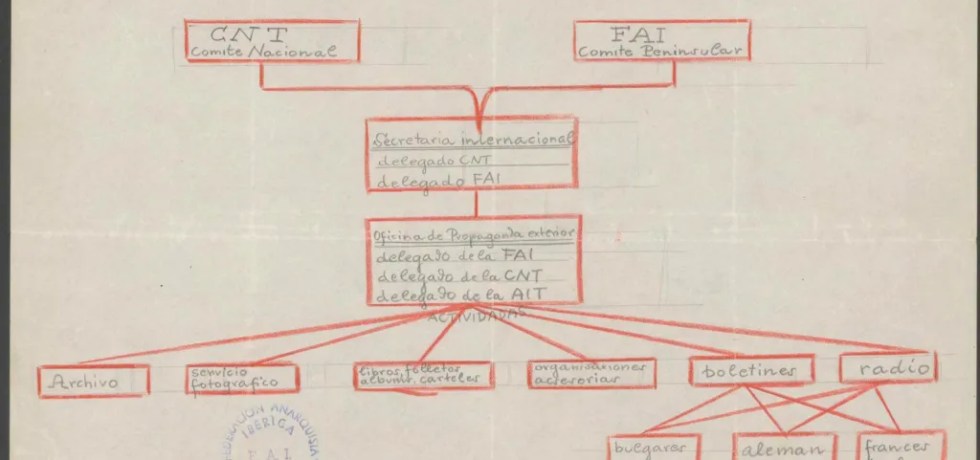 CNT
Comite Nacional
FAI
Comite Peninsular
Secretaria internacional
delegado CNT
delegado FAI
Oficina de Propaganda exterior
delegado de la FAI
delegado de la CNT
delegado de la AIT
ACTIVIDADAS
Archivo
servicio
fotografico
libros, folletos
albums. carteles
organisaciones
accesorias
boletines
radio
bulgaros
aleman
frances
ANARQUISTA
IBERICA
F.A.I.